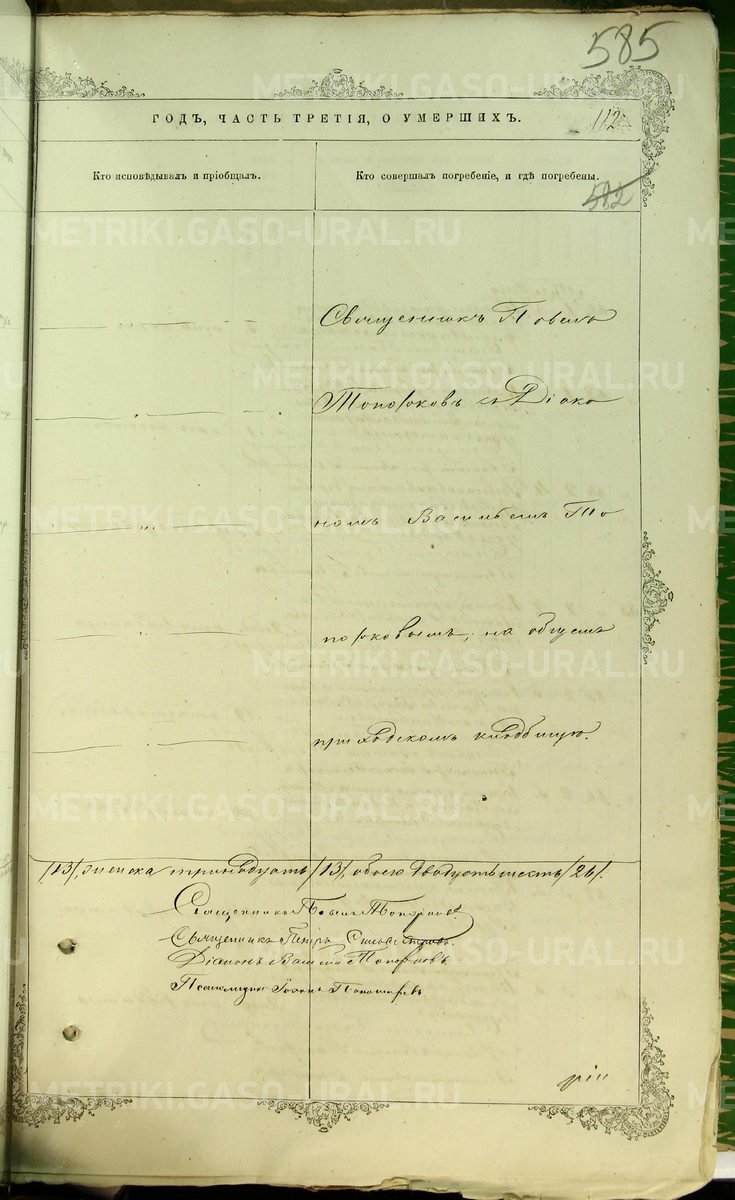 585
ГОДЪ, ЧАСТЬ ТРЕТІЯ, О УМЕРШИХЪ.
112
Кто исповѣдывалъ и пріобщалъ.
Кто совершалъ погребеніе, и гдѣ погребены.
512
Священникъ Павелъ
Топорковъ съ Діако
номъ Васильемъ То
порковымъ, на общемъ
приходскомъ кладбищѣ.
/13/, женска тринадцать /13/, обоего двадцать шесть /26/.
Священникъ Павелъ Топорковъ
Священникъ Петръ Сильвестровъ.
Діаконъ Василій Топорковъ
Псаломщикъ Іоаннъ
METRIKI.GASO-URAL.RU